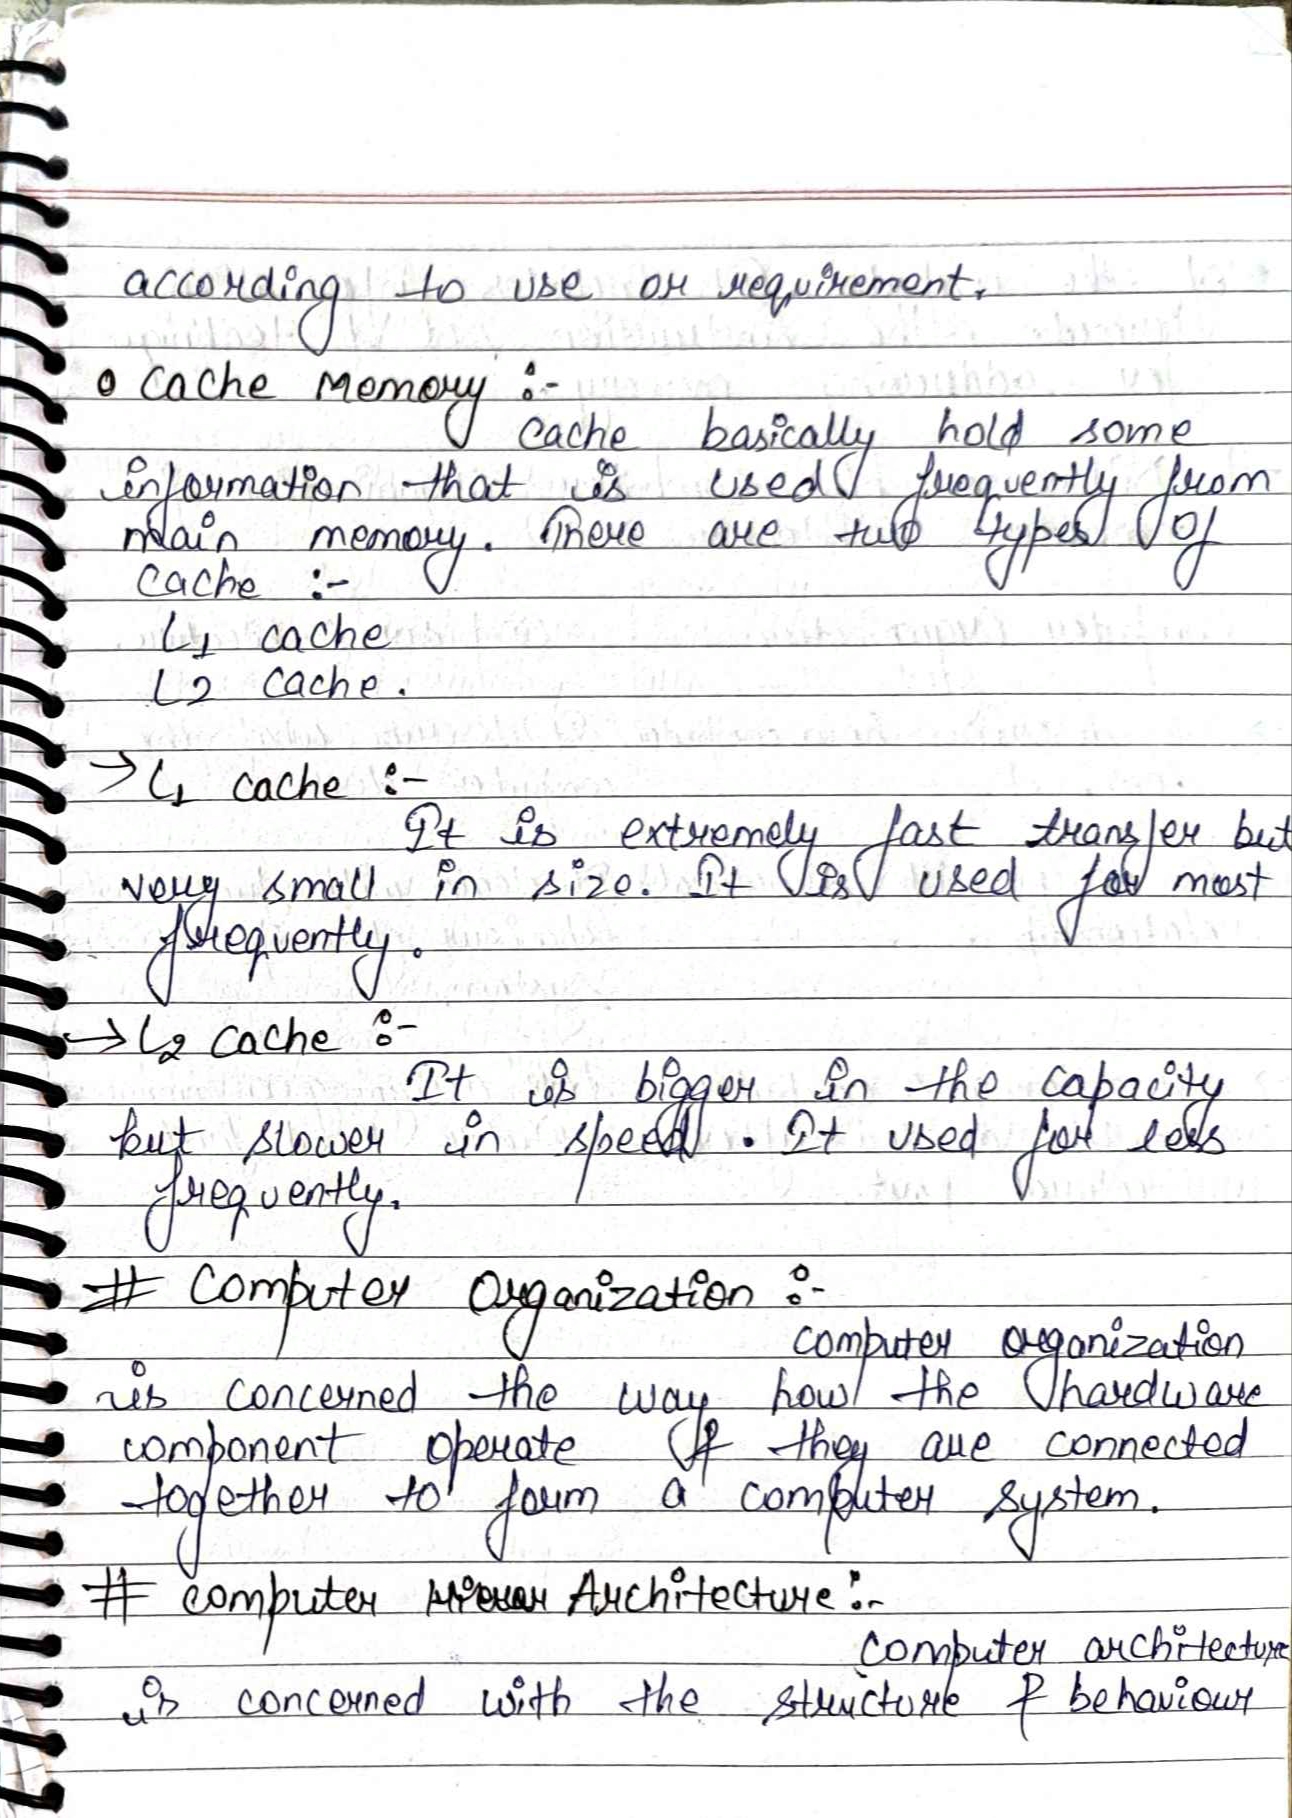 according to use or requirement.
• Cache Memory :-
Cache basically hold some
information that is used frequently from
main memory. There are two types of
Cache :-
L1 cache
L2 cache.
→ L1 cache :-
It is extremely fast transfer but
very small in size. It is used for most
frequently.
→ L2 cache :-
It is bigger in the capacity
but slower in speed. It used for less
frequently.
# Computer Organization :-
Computer organization
is concerned the way how the hardware
component operate & they are connected
together to form a computer system.
# Computer Architecture :-
Computer architecture
is concerned with the structure & behaviour